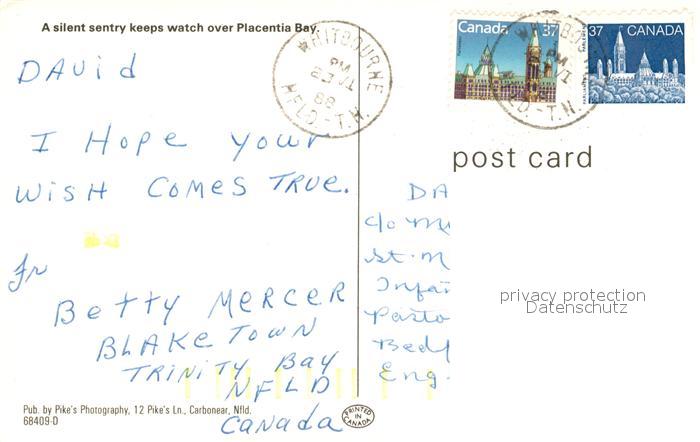 A silent sentry keeps watch over Placentia Bay.
WHITBOURNE
PM
88
NFLD.-T.N.
Canada 37
37 CANADA
post card
DAVID
I HOPE your
WISH COMES TRUE.
Fr
BETTY MERCER
BLAKETOWN
TRINITY BAY
NFLD
CANADA
DA
c/o
St. M
Infan
Pasto
Bedf
Eng.
privacy protection
Datenschutz
Pub. by Pike's Photography, 12 Pike's Ln., Carbonear, Nfld.
68409-D
PRINTED IN CANADA